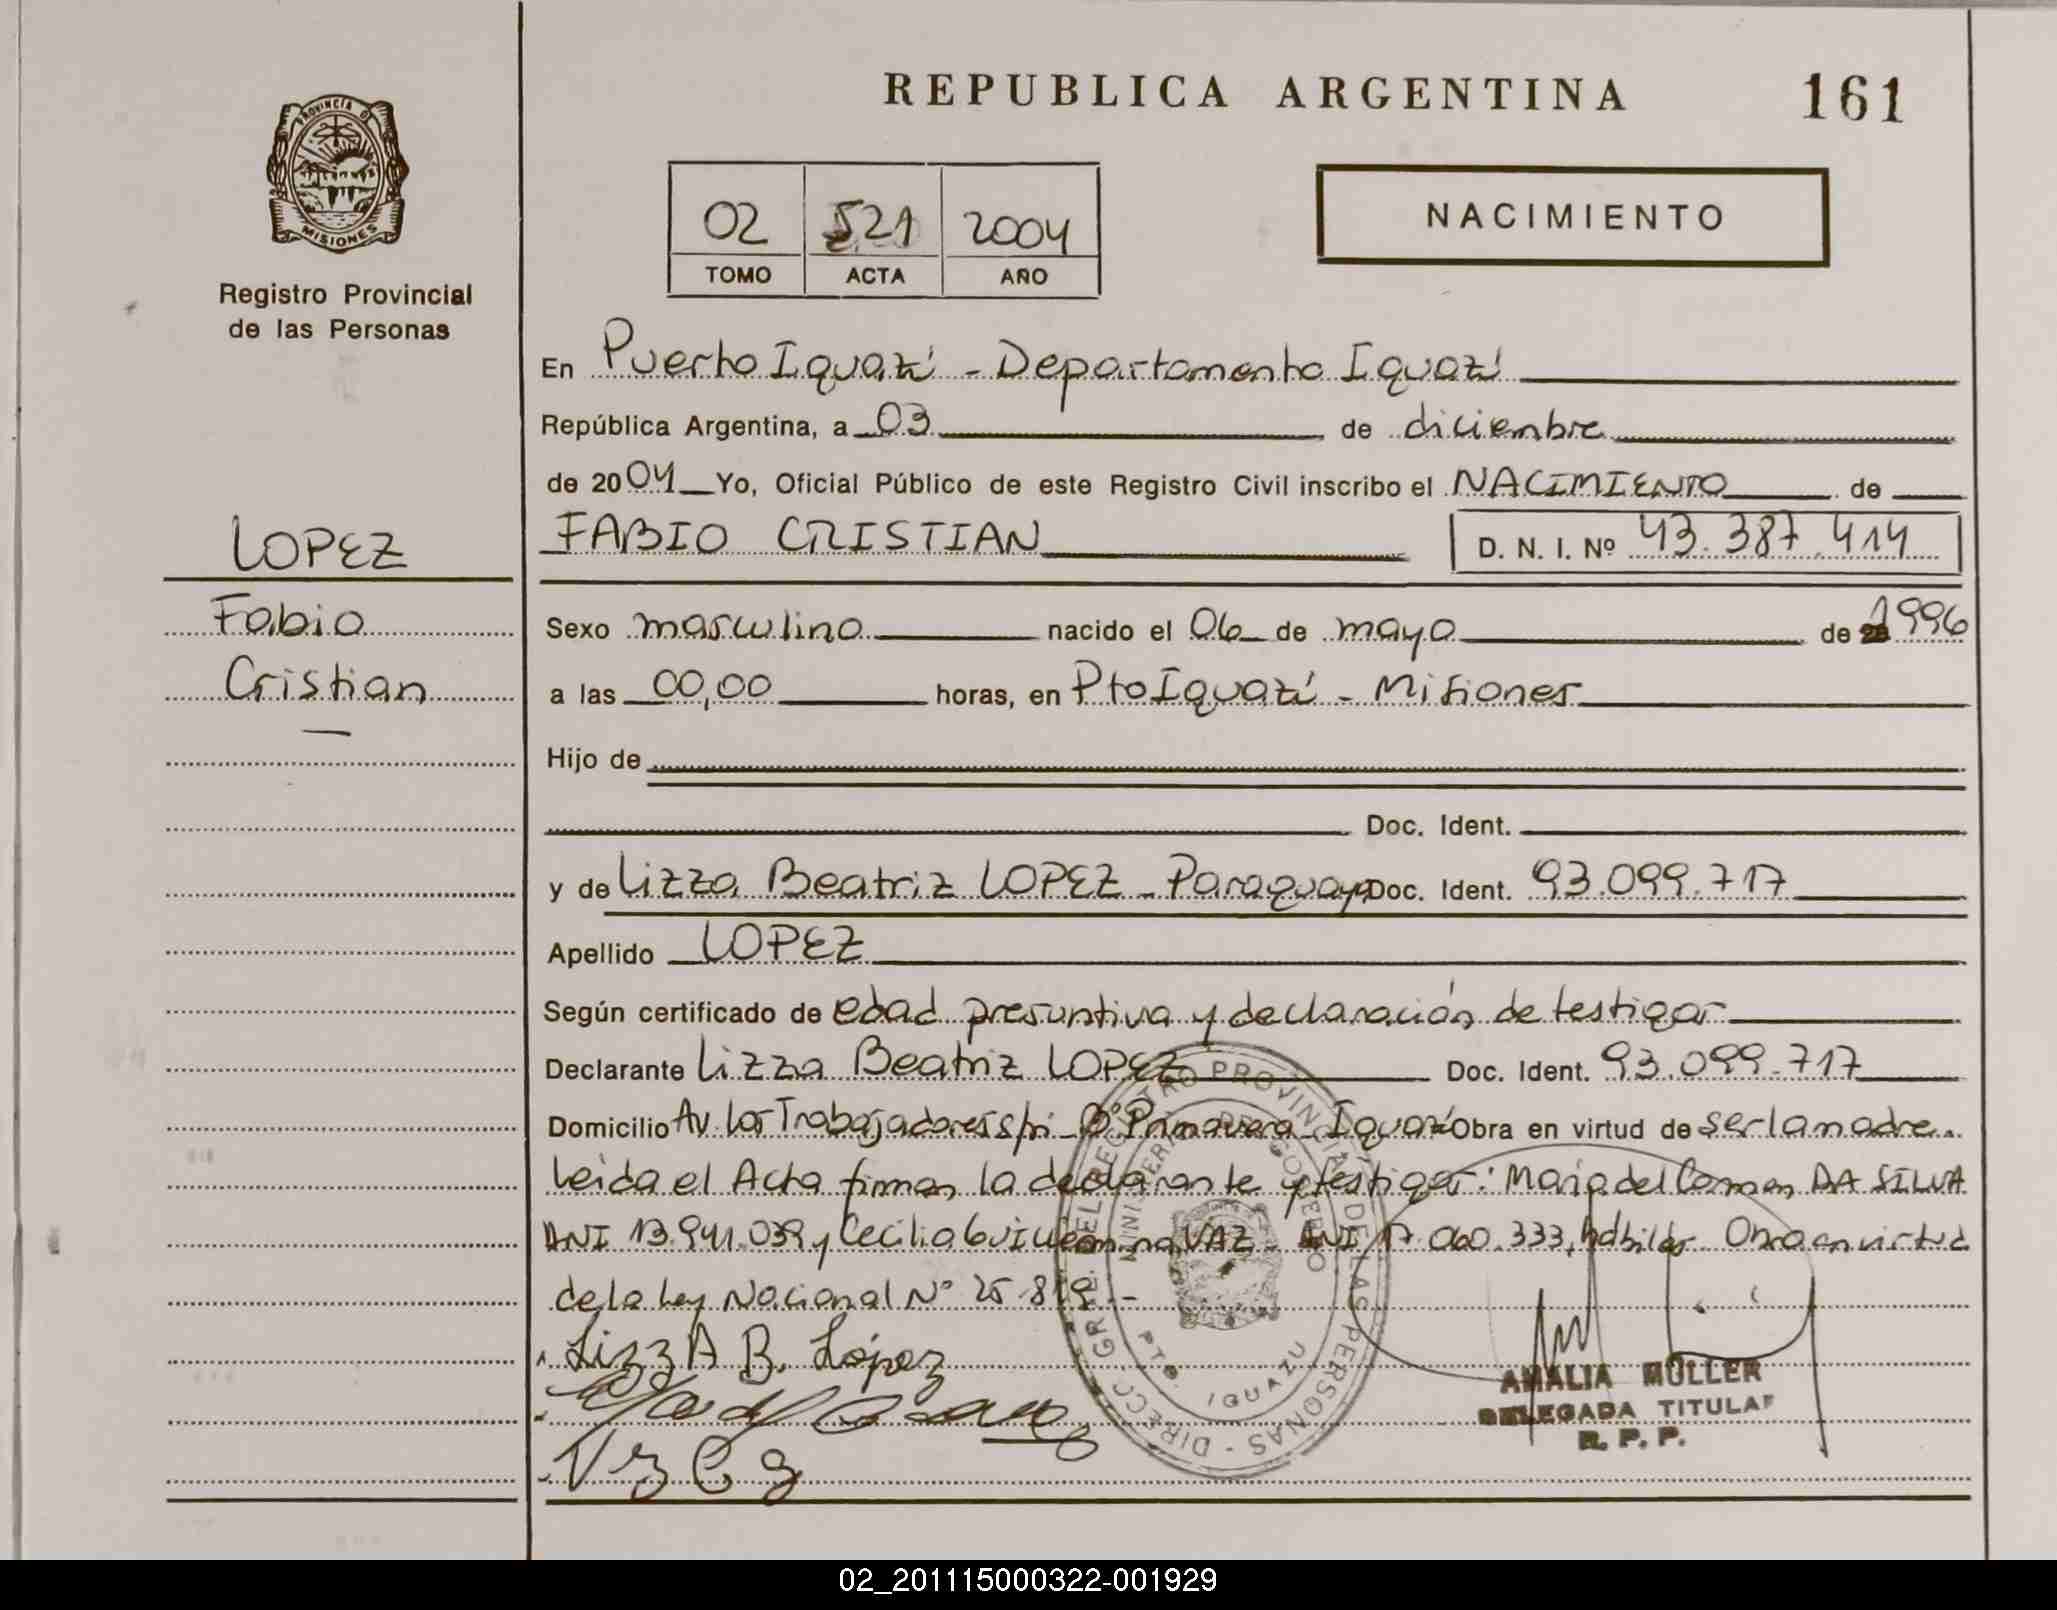 REPUBLICA ARGENTINA 161
PROVINCIA DE
MISIONES
Registro Provincial
de las Personas
02 521 2004
TOMO ACTA AÑO
NACIMIENTO
LOPEZ
Fabio
Cristian
En Puerto Iguazú - Departamento Iguazú
República Argentina, a 03 de diciembre
de 2004 Yo, Oficial Público de este Registro Civil inscribo el NACIMIENTO de
FABIO CRISTIAN D. N. I. Nº 43.387.414
Sexo masculino nacido el 06 de mayo de 1996
a las 00,00 horas, en Pto Iguazú - Misiones
Hijo de
Doc. Ident.
y de Lizza Beatriz LOPEZ - Paraguaya Doc. Ident. 93.099.717
Apellido LOPEZ
Según certificado de edad presuntiva y declaración de testigos
Declarante Lizza Beatriz LOPEZ Doc. Ident. 93.099.717
Domicilio Av. Los Trabajadores s/n - Bº Primavera - Iguazú Obra en virtud de ser la madre.
Leida el Acta firman la declarante y testigos: María del Carmen DA SILVA
DNI 13.941.039 y Cecilia VAZ - DNI 17.060.333, hábiles. Obra en virtud
de la Ley Nacional Nº 25.819.-
Lizza B. López
DIRECC. GRAL. DEL REGISTRO PROVINCIAL DE LAS PERSONAS -
MINISTERIO DE GOBIERNO
PTO. IGUAZU
AMALIA MULLER
DELEGADA TITULAR
R. P. P.
02_201115000322-001929